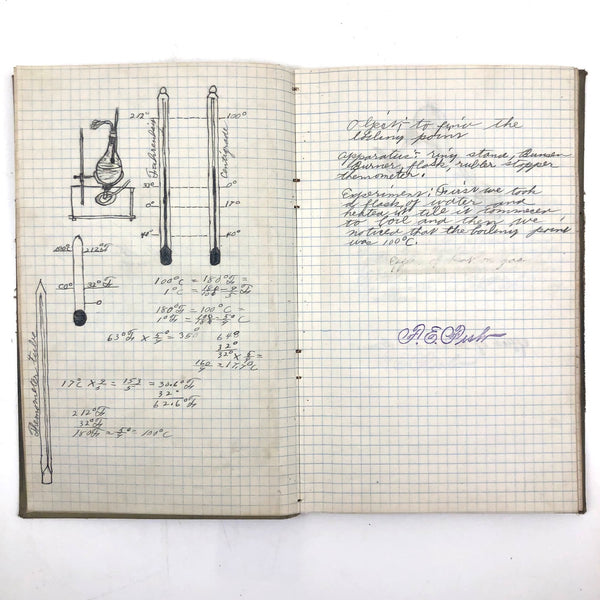 212° 100°
Fahrenheit
Centigrade
32° 0°
0° 17°
40° 40°
212°F
C0° 32°F
0
Themometer tube
100°C = 180°F =
1°C = 180/100 = 9/5°F
180°F = 100°C =
1°F = 100/180 = 5/9°C
63°F × 5/9 =
64°
32°
32° × 5/9 =
160/9 = 17.7°C
17°C × 9/5 = 153/5 = 30.6°F
32°
62.6°F
212°F
32°F
180°F = 5/9° = 100°C
Object: to find the
boiling point
apparatus: ring stand, Bunsen
Burner, flask, rubber stopper
themometer.
Experiment: First we took
a flask of water and
heated it till it commeced
to boil and then we
noticed that the boiling point
was 100°C.
Effect of heat on gas